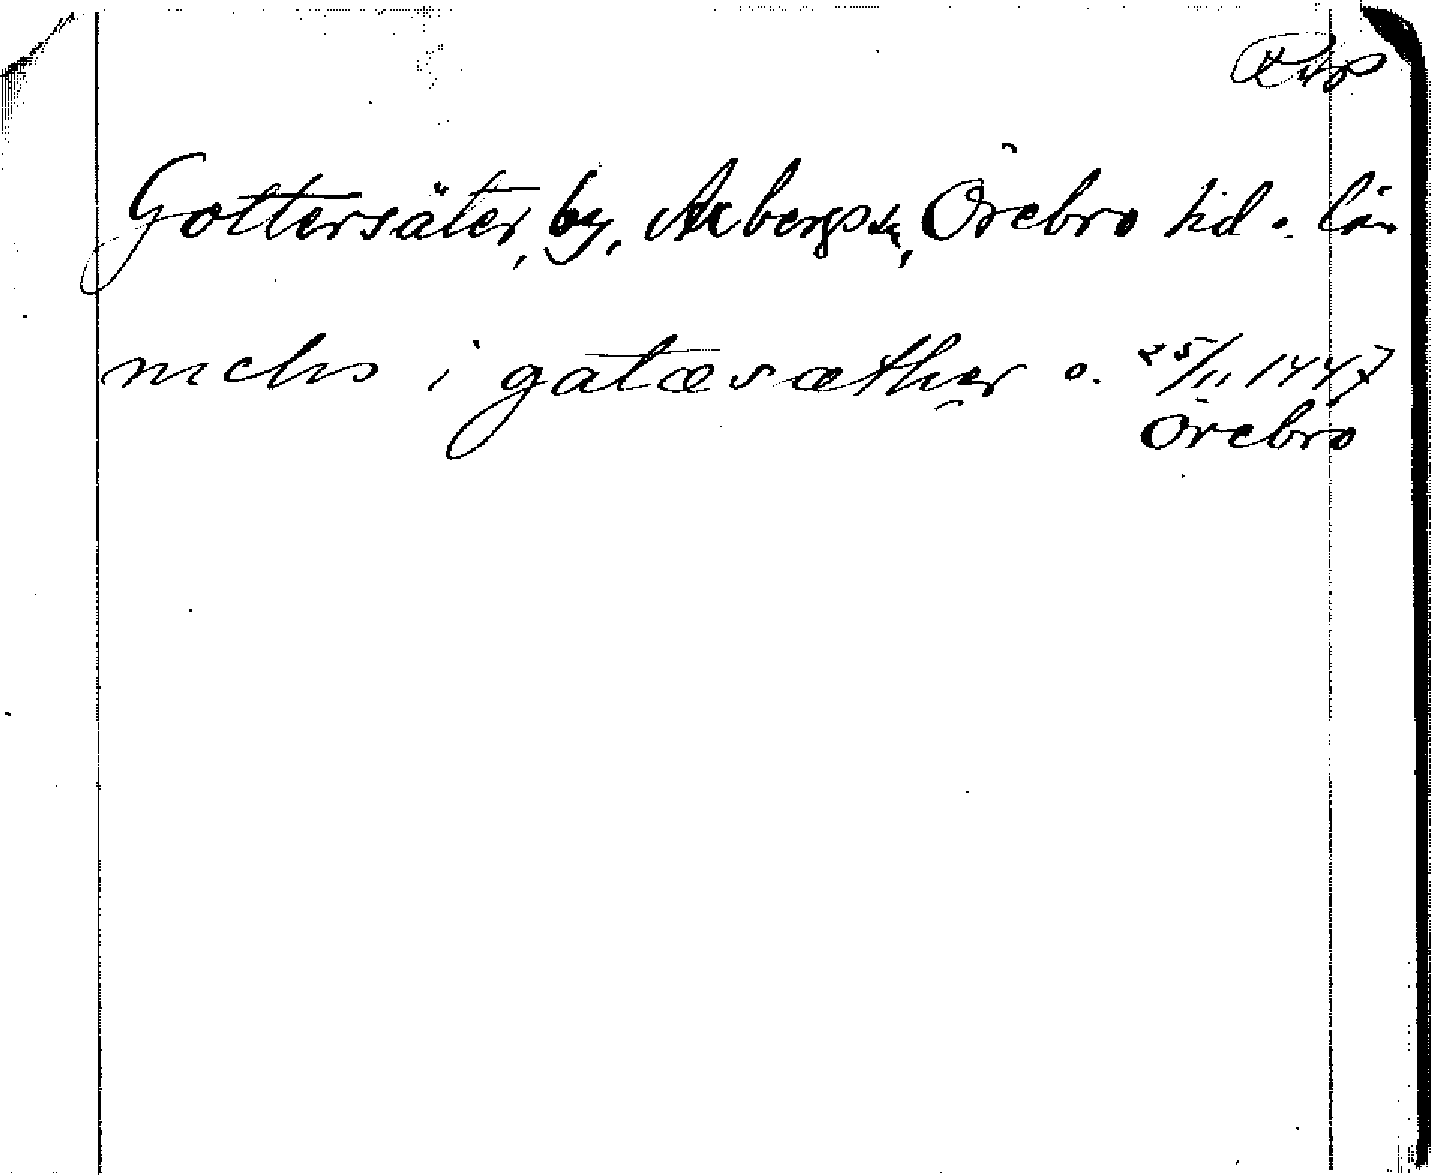 Rtp
Gottersäter, by, Axbergs sn, Örebro hd o. län
nichs i gatæsæther o. 25/11 1447
Örebro